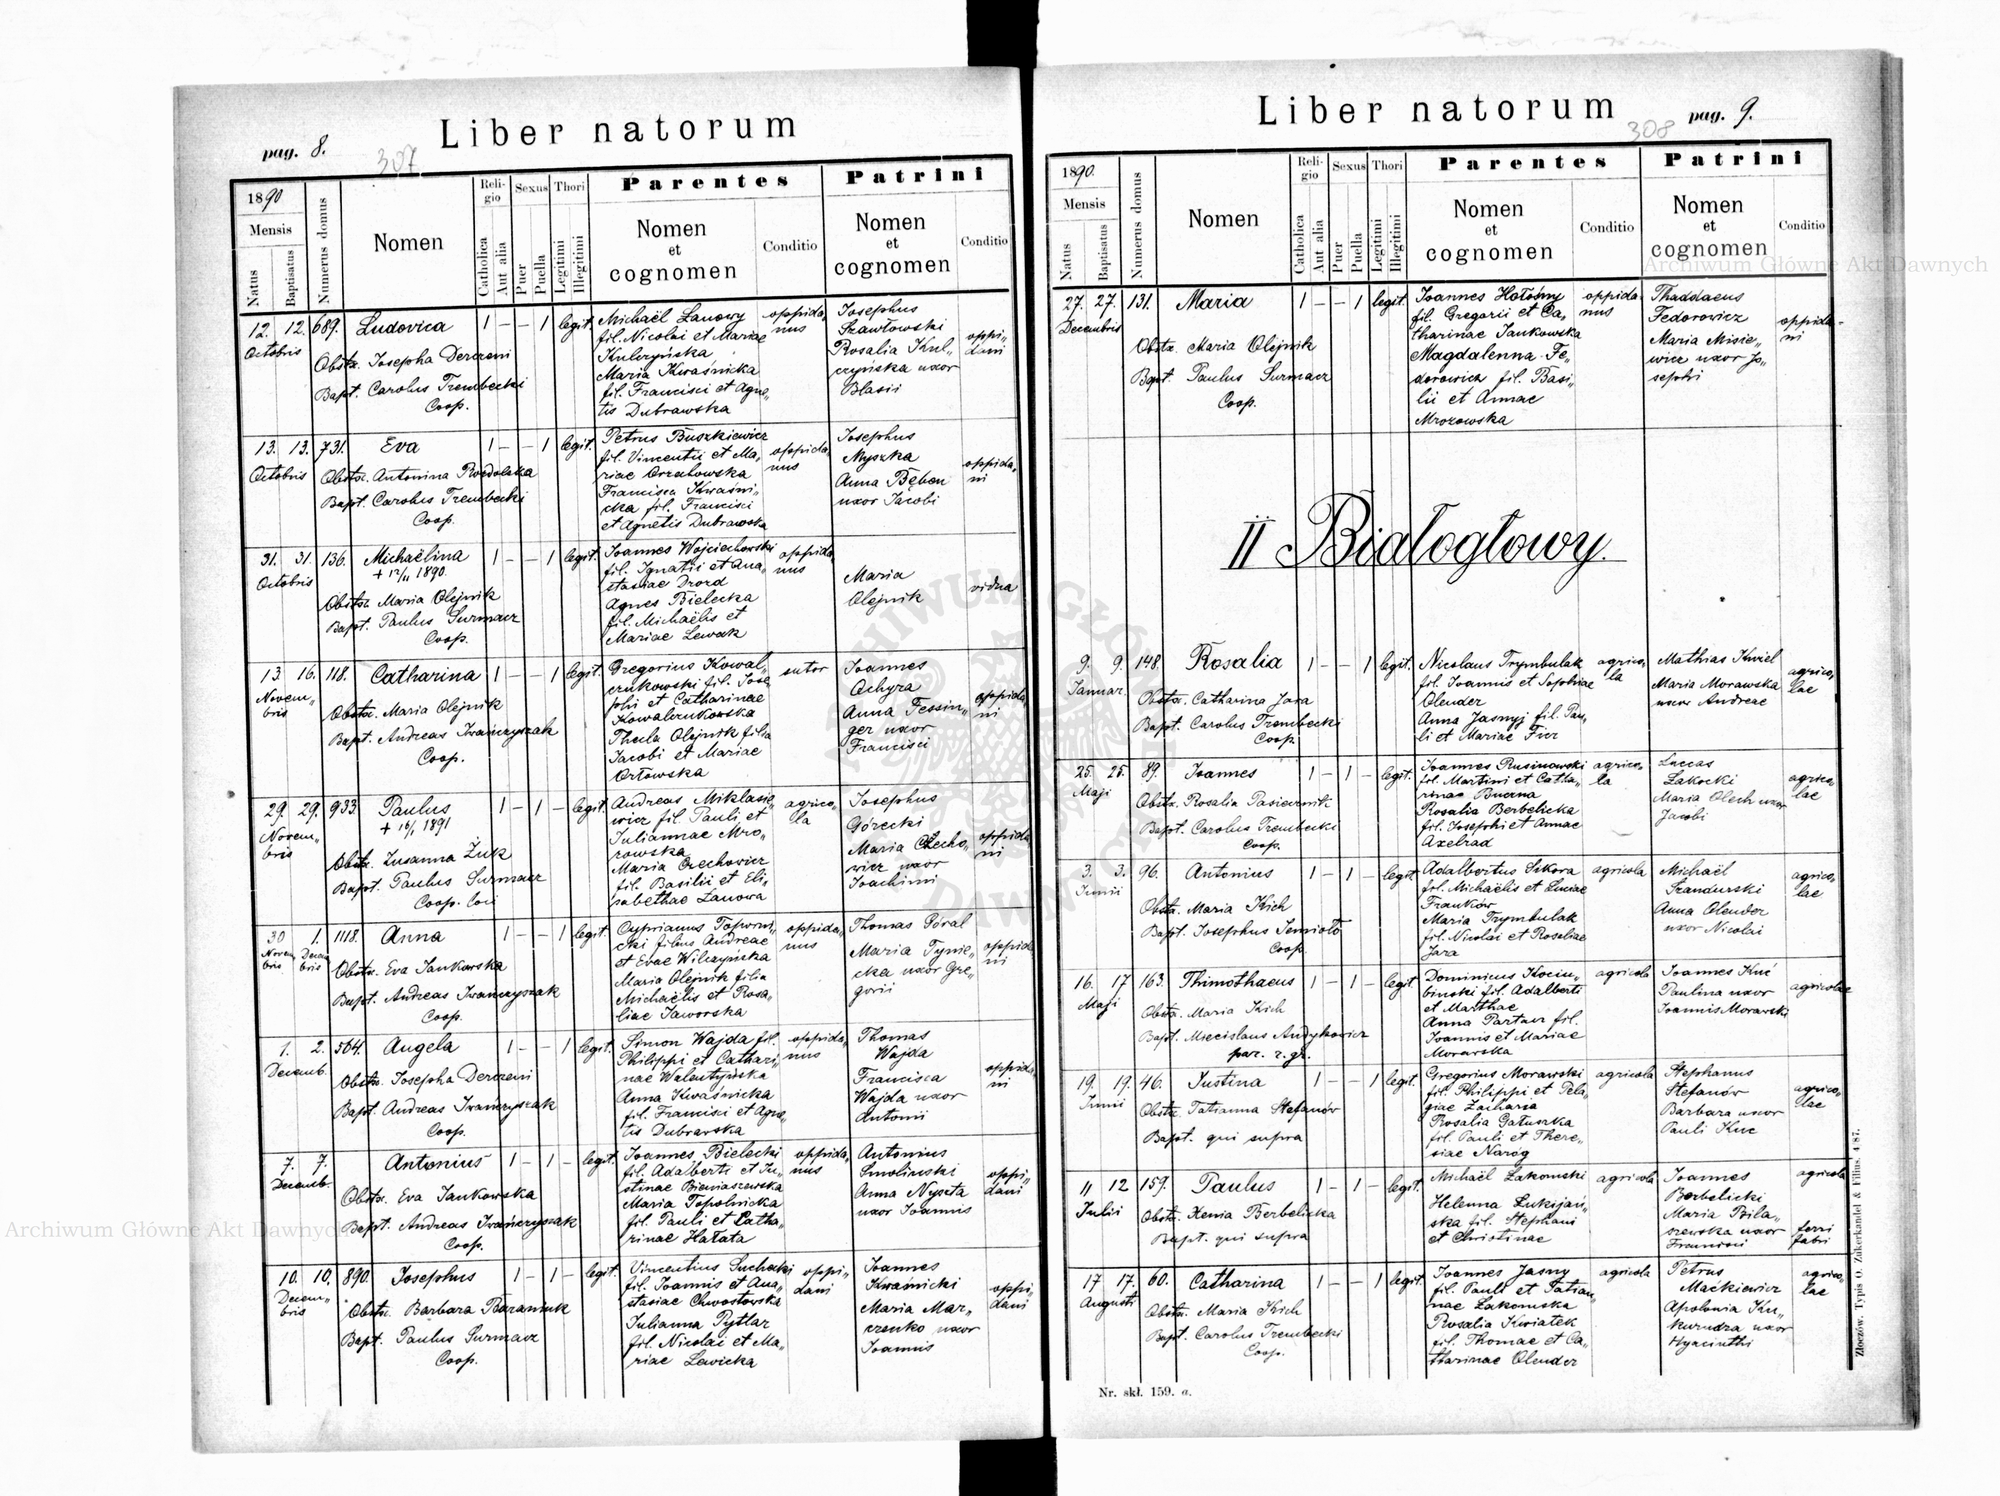 Liber natorum
pag. 8.
307
1890
Mensis
Natus
Baptisatus
Numerus domus
Nomen
Religio
Catholica
Aut alia
Sexus
Puer
Puella
Thori
Legitimi
Illegitimi
Parentes
Nomen
et
cognomen
Conditio
Patrini
Nomen
et
cognomen
Conditio
12. 12. 689. Ludovica 1 – – 1 legit.
Octobris
Obstx. Josepha Derczeni
Bapt. Carolus Trembecki
Coop.
Michaël Lanowy
fil. Nicolai et Mariae
Kulczyńska
Maria Kwaśnicka
fil. Francisci et Agne„
tis Dubrawska
oppida„
nus
Josephus
Szawłowski
Rosalia Kul„
czyńska uxor
Blasii
oppi„
dani
13. 13. 731. Eva 1 – – 1 legit.
Octobris
Obstx. Antonina
Bapt. Carolus Trembecki
Coop.
Petrus Buszkiewicz
fil. Vincentii et Ma„
riae
Francisca Kwaśni„
cka fil. Francisci
et Agnetis Dubrawska
oppida„
nus
Josephus
Myszka
Anna Bęben
uxor Jacobi
oppida„
ni
31. 31. 136. Michaëlina 1 – – 1 legit.
Octobris
+ 12/11 1890.
Obstx. Maria Olejnik
Bapt. Paulus Surmacz
Coop.
Joannes Wojciechowski
fil. Ignatii et Ana„
stasiae Drozd
Agnes Bielecka
fil. Michaëlis et
Mariae Lewak
oppida„
nus
Maria
Olejnik
vidua
13 16. 118. Catharina 1 – – 1 legit.
Novem„
bris
Obstx. Maria Olejnik
Bapt. Andreas Iwańczyszak
Coop.
Gregorius Kowal„
czukowski fil. Jose„
phi et Catharinae
Kowalczukowska
Thecla Olejnik filia
Jacobi et Mariae
Orłowska
sutor
Joannes
Achyra
Anna Fessin„
ger uxor
Francisci
oppida„
ni
29. 29. 933. Paulus 1 – 1 – legit.
Novem„
bris
+ 16/1 1891
Obstx. Zusanna Żuk
Bapt. Paulus Surmacz
Coop. loci
Andreas Miklasie„
wicz fil Pauli et
Juliannae Mro„
zowska
Maria Czechowicz
fil. Basilii et Eli„
sabethae Lanowa
agrico„
la
Josephus
Górecki
Maria Czecho„
wicz uxor
Joachimi
oppida„
ni
30 1. 1118. Anna 1 – – 1 legit.
Novem„
bris
Decem„
bris
Obstx. Eva Jankowska
Bapt. Andreas Iwańczyszak
Coop.
Cyprianus
cki filius Andreae
et Evae Wilczyńska
Maria Olejnik filia
Michaëlis et Rosa„
liae Jaworska
oppida„
nus
Thomas Góral
Maria Tynie„
cka uxor Gre„
gorii
oppida„
ni
1. 2. 564. Angela 1 – – 1 legit.
Decemb.
Obstx. Josepha Derczeni
Bapt. Andreas Iwańczyszak
Coop.
Simon Wajda fil.
Philippi et Cathari„
nae Walentyńska
Anna Kwaśnicka
fil. Francisci et Agne„
tis Dubrawska
oppida„
nus
Thomas
Wajda
Francisca
Wajda uxor
Antonii
oppida„
ni
7. 7. Antonius 1 – 1 – legit.
Decemb.
Obstx. Eva Jankowska
Bapt. Andreas Iwańczyszak
Coop.
Joannes Bielecki
fil. Adalberti et Ju„
stinae Bieniaszewska
Maria Topolnicka
fil. Pauli et Catha„
rinae Hałata
oppida„
nus
Antonius
Smolinski
Anna Nyszta
uxor Joannis
oppi„
dani
10. 10. 890. Josephus 1 – 1 – legit.
Decem„
bris
Obstx. Barbara Baraniuk
Bapt. Paulus Surmacz
Coop.
Vincentius Suchecki
fil. Joannis et Ana„
stasiae Chwostowska
Julianna Pytlar
fil. Nicolai et Ma„
riae Lewicka
oppi„
dani
Joannes
Kwaśnicki
Maria Mar„
czenko uxor
Joannis
oppi„
dani
Liber natorum
308
pag. 9.
1890.
Mensis
Natus
Baptisatus
Numerus domus
Nomen
Religio
Catholica
Aut alia
Sexus
Puer
Puella
Thori
Legitimi
Illegitimi
Parentes
Nomen
et
cognomen
Conditio
Patrini
Nomen
et
cognomen
Conditio
27. 27. 131. Maria 1 – – 1 legit.
Decembris
Obstx. Maria Olejnik
Bapt. Paulus Surmacz
Coop.
Joannes Hołośny
fil. Gregorii et Ca„
tharinae Jankowska
Magdalenna Fe„
dorowicz fil. Basi„
lii et Annae
Mrozowska
oppida„
nus
Thaddaeus
Fedorowicz
Maria Misie„
wicz uxor Jo„
sephi
oppida„
ni
II Białogłowy.
9. 9. 148. Rosalia 1 – – 1 legit.
Januar.
Obstx. Catharina Jara
Bapt. Carolus Trembecki
Coop.
Nicolaus Trymbulak
fil. Joannis et Sophiae
Olender
Anna Jasnyj fil. Pau„
li et Mariae Fier
agrico„
la
Mathias Kwiel
Maria Morawska
uxor Andreae
agrico„
lae
25. 25. 89. Joannes 1 – 1 – legit.
Maji
Obstx. Rosalia Pasiecznik
Bapt. Carolus Trembecki
Coop.
Joannes Rusinowski
fil. Martini et Catha„
rinae Buczna
Rosalia Berbelicka
fil. Josephi et Annae
Axelrad
agrico„
la
Luccas
Lakocki
Maria Olech uxor
Jacobi
agrico„
lae
3. 3. 96. Antonius 1 – 1 – legit.
Junii
Obstx. Maria Kich
Bapt. Josephus Jemioło
Coop.
Adalbertus Sikora
fil. Michaëlis et Luciae
Franków
Maria Trymbulak
fil. Nicolai et Rosaliae
Jara
agricola
Michaël
Szandurski
Anna Olender
uxor Nicolai
agrico„
lae
16. 17 163. Thimothaeus 1 – 1 – legit.
Maji
Obstx. Maria Kich
Bapt. Miecislaus Andrykowicz
par. r. gr.
Dominicus Kociu„
binski fil. Adalberti
et Marthae
Anna Partacz fil.
Joannis et Mariae
Morawska
agricola
Joannes Kuć
Paulina uxor
Joannis Morawski
agricolae
19. 19. 46. Justina 1 – – 1 legit.
Junii
Obstx. Tatianna Stefanów
Bapt. qui supra
Gregorius Morawski
fil. Philippi et Pela„
giae Zacharia
Rosalia Gałuszka
fil. Pauli et There„
siae Naróg
agricola
Stephanus
Stefanów
Barbara uxor
Pauli Kuc
agrico„
lae
11 12 159. Paulus 1 – 1 – legit.
Julii
Obstx. Xenia Berbelicka
Bapt. qui supra
Michaël Lakomski
Helenna Lukijań„
ska fil. Stephani
et Christinae
agricola
Joannes
Berbelicki
Maria Bila„
szewska uxor
Francisci
agricola
ferri
fabri
17 17. 60. Catharina 1 – – 1 legit.
Augusti
Obstx. Maria Kich
Bapt. Carolus Trembecki
Coop.
Joannes Jasny
fil. Pauli et Tatian„
nae Lakomska
Rosalia Kwiatek
fil. Thomae et Ca„
tharinae Olender
agricola
Petrus
Mackiewicz
Apolonia Ku„
kurudza uxor
Hyacinthi
agrico„
lae
Nr. skł. 159. a.
Złoczów. Typis O. Zukerkandel & Filius. 4/87.
Archiwum Główne Akt Dawnych
Archiwum Główne Akt Dawnych
ARCHIWUM GŁÓWNE AKT DAWNYCH